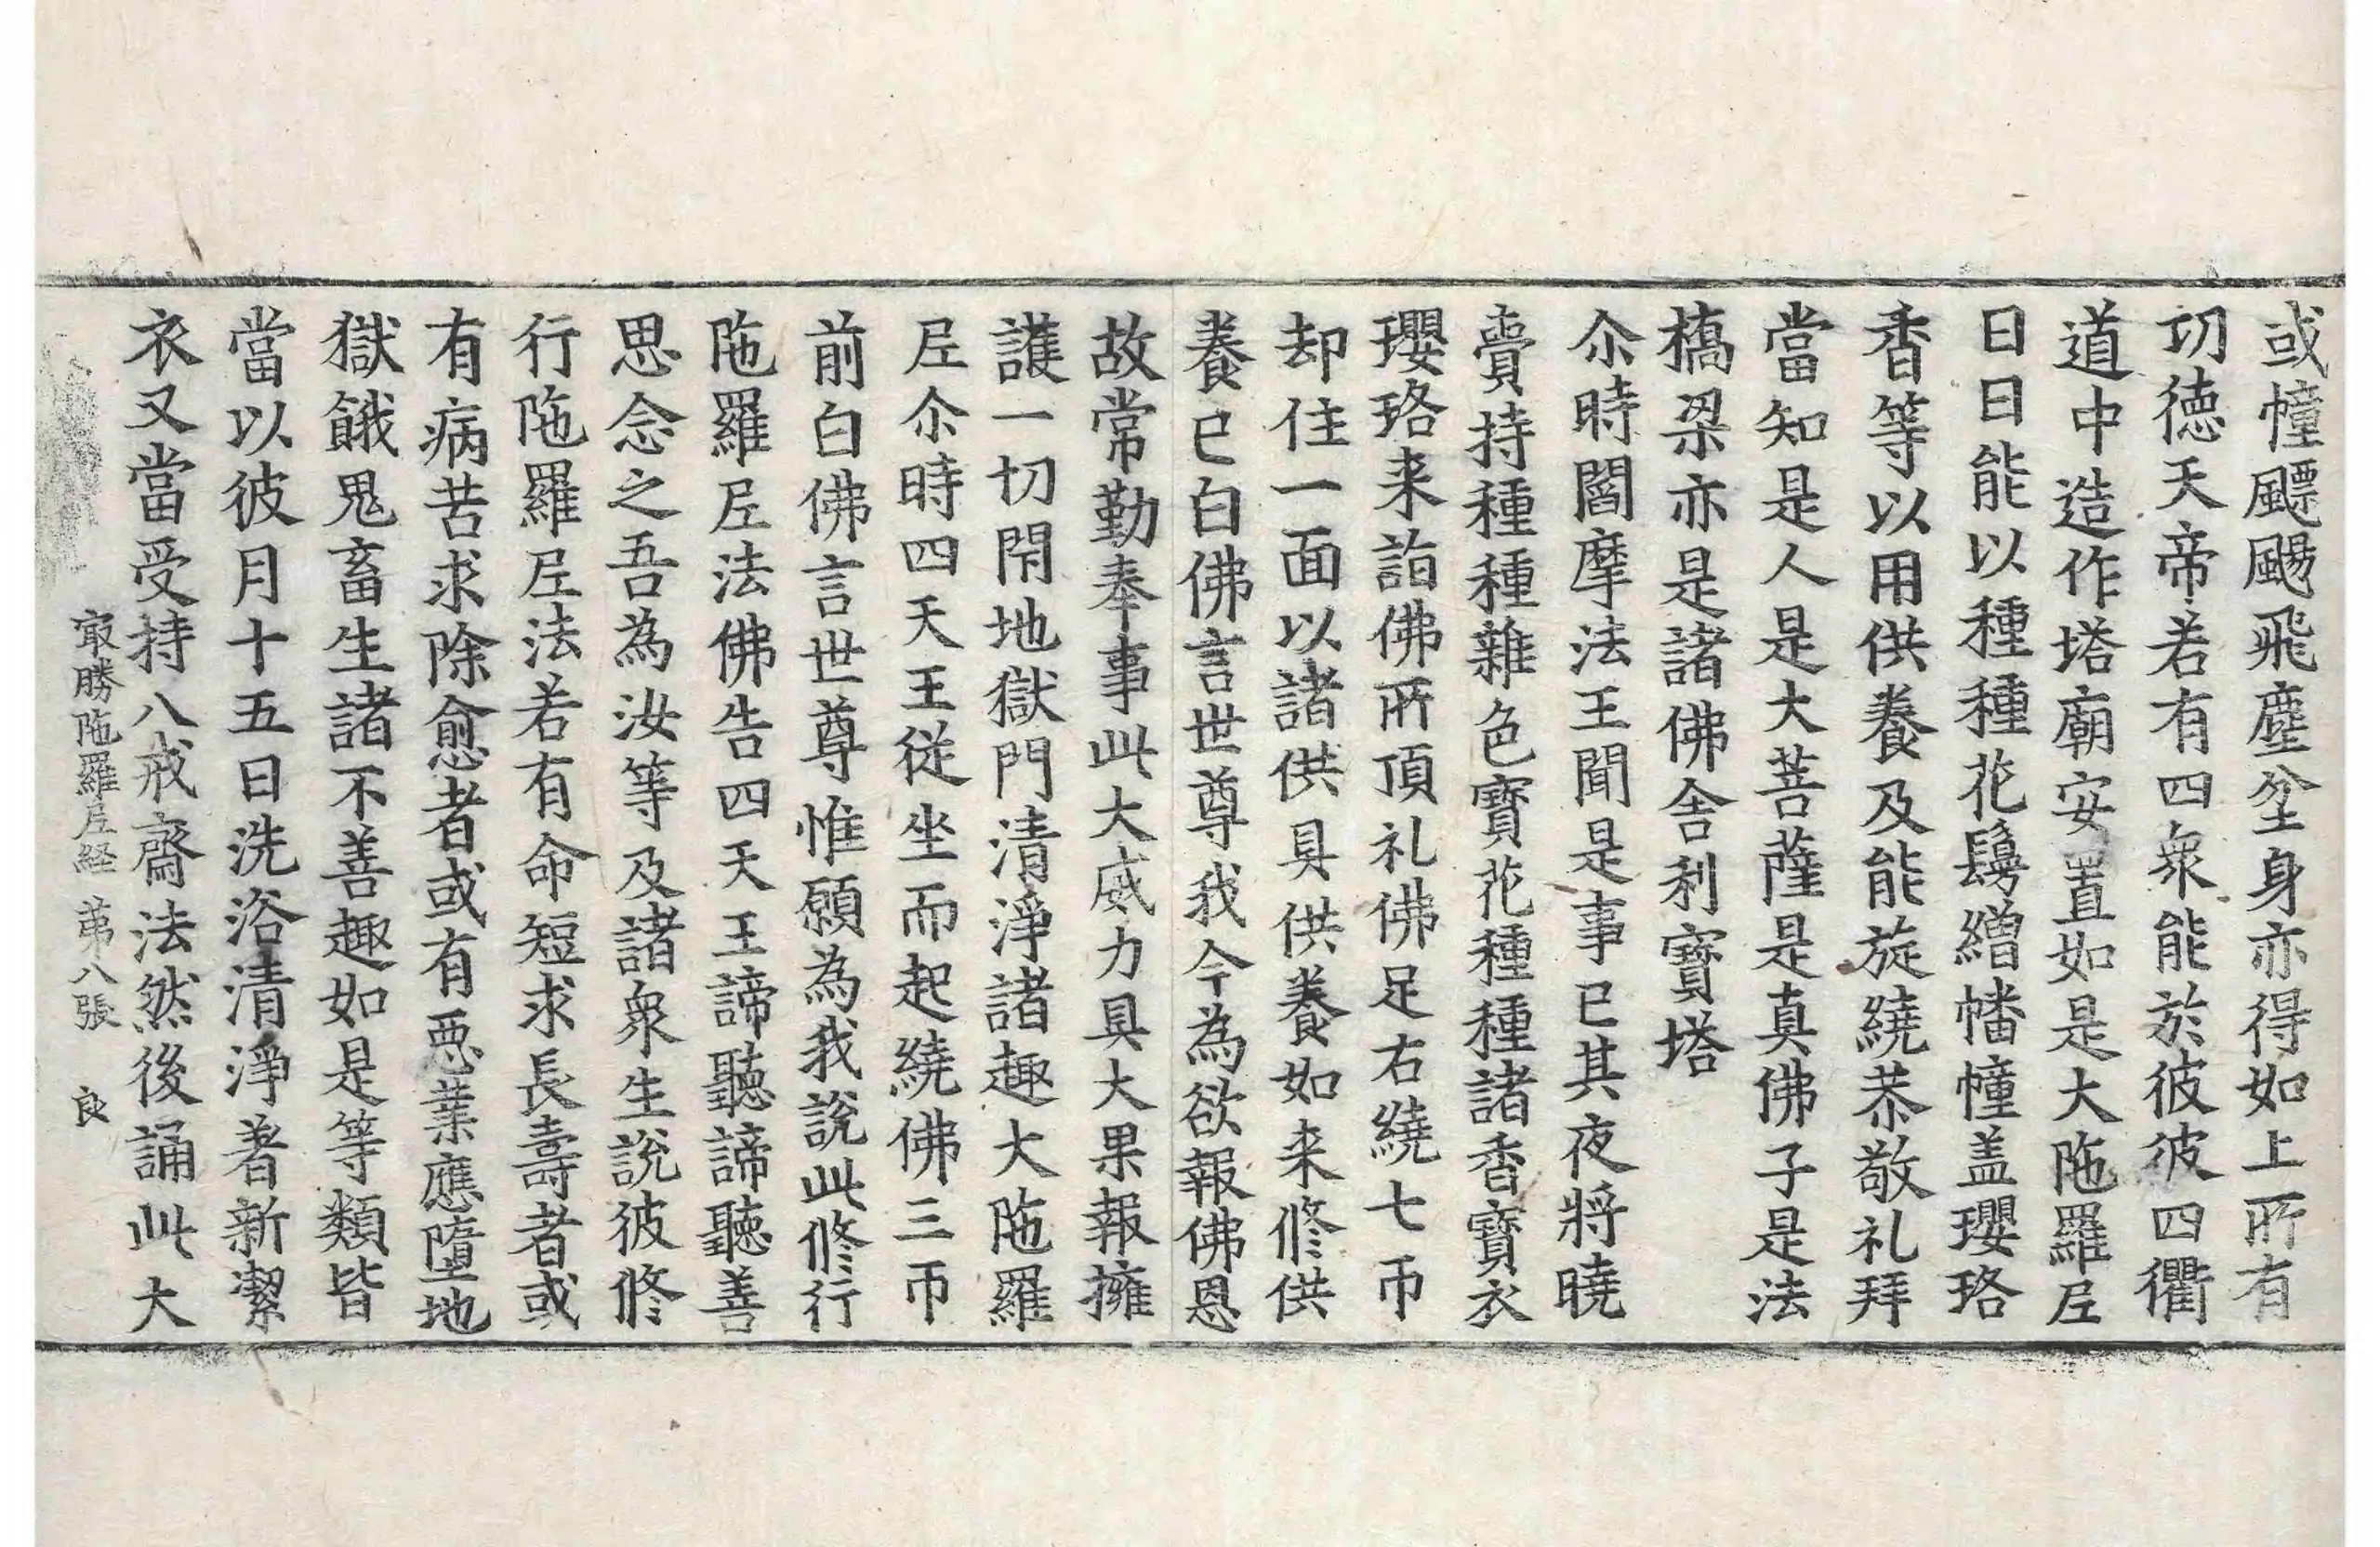 或幢飃颺飛塵坌身亦得如上所有
切徳天帝若有四衆能於彼彼四衢
道中造作塔廟安置如是大陁羅𡰱
日日能以種種花鬘繒幡幢盖瓔珞
香等以用供養及能旋繞恭敬礼拜
當知是人是大菩薩是真佛子是法
橋梁亦是諸佛舎利寶塔
尒時閻摩法王聞是事已其夜將曉
賷持種種雜色寶花種種諸香寶衣
瓔珞来詣佛所頂礼佛足右繞七帀
却住一面以諸供具供養如来修供
養已白佛言世尊我今為欲報佛恩
故常勤奉事此大威力具大果報擁
護一切閇地獄門清淨諸趣大陁羅
𡰱尒時四天王従坐而起繞佛三帀
前白佛言世尊惟願為我說此修行
陁羅𡰱法佛告四天王諦聽諦聽善
思念之吾為汝等及諸衆生說彼修
行陁羅𡰱法若有命短求長壽者或
有病苦求除愈者或有惡業應墮地
獄餓鬼畜生諸不善趣如是等類皆
當以彼月十五日洗浴清淨著新潔
衣又當受持八戒齋法然後誦此大
㝡勝陁羅𡰱経 苐八張 良